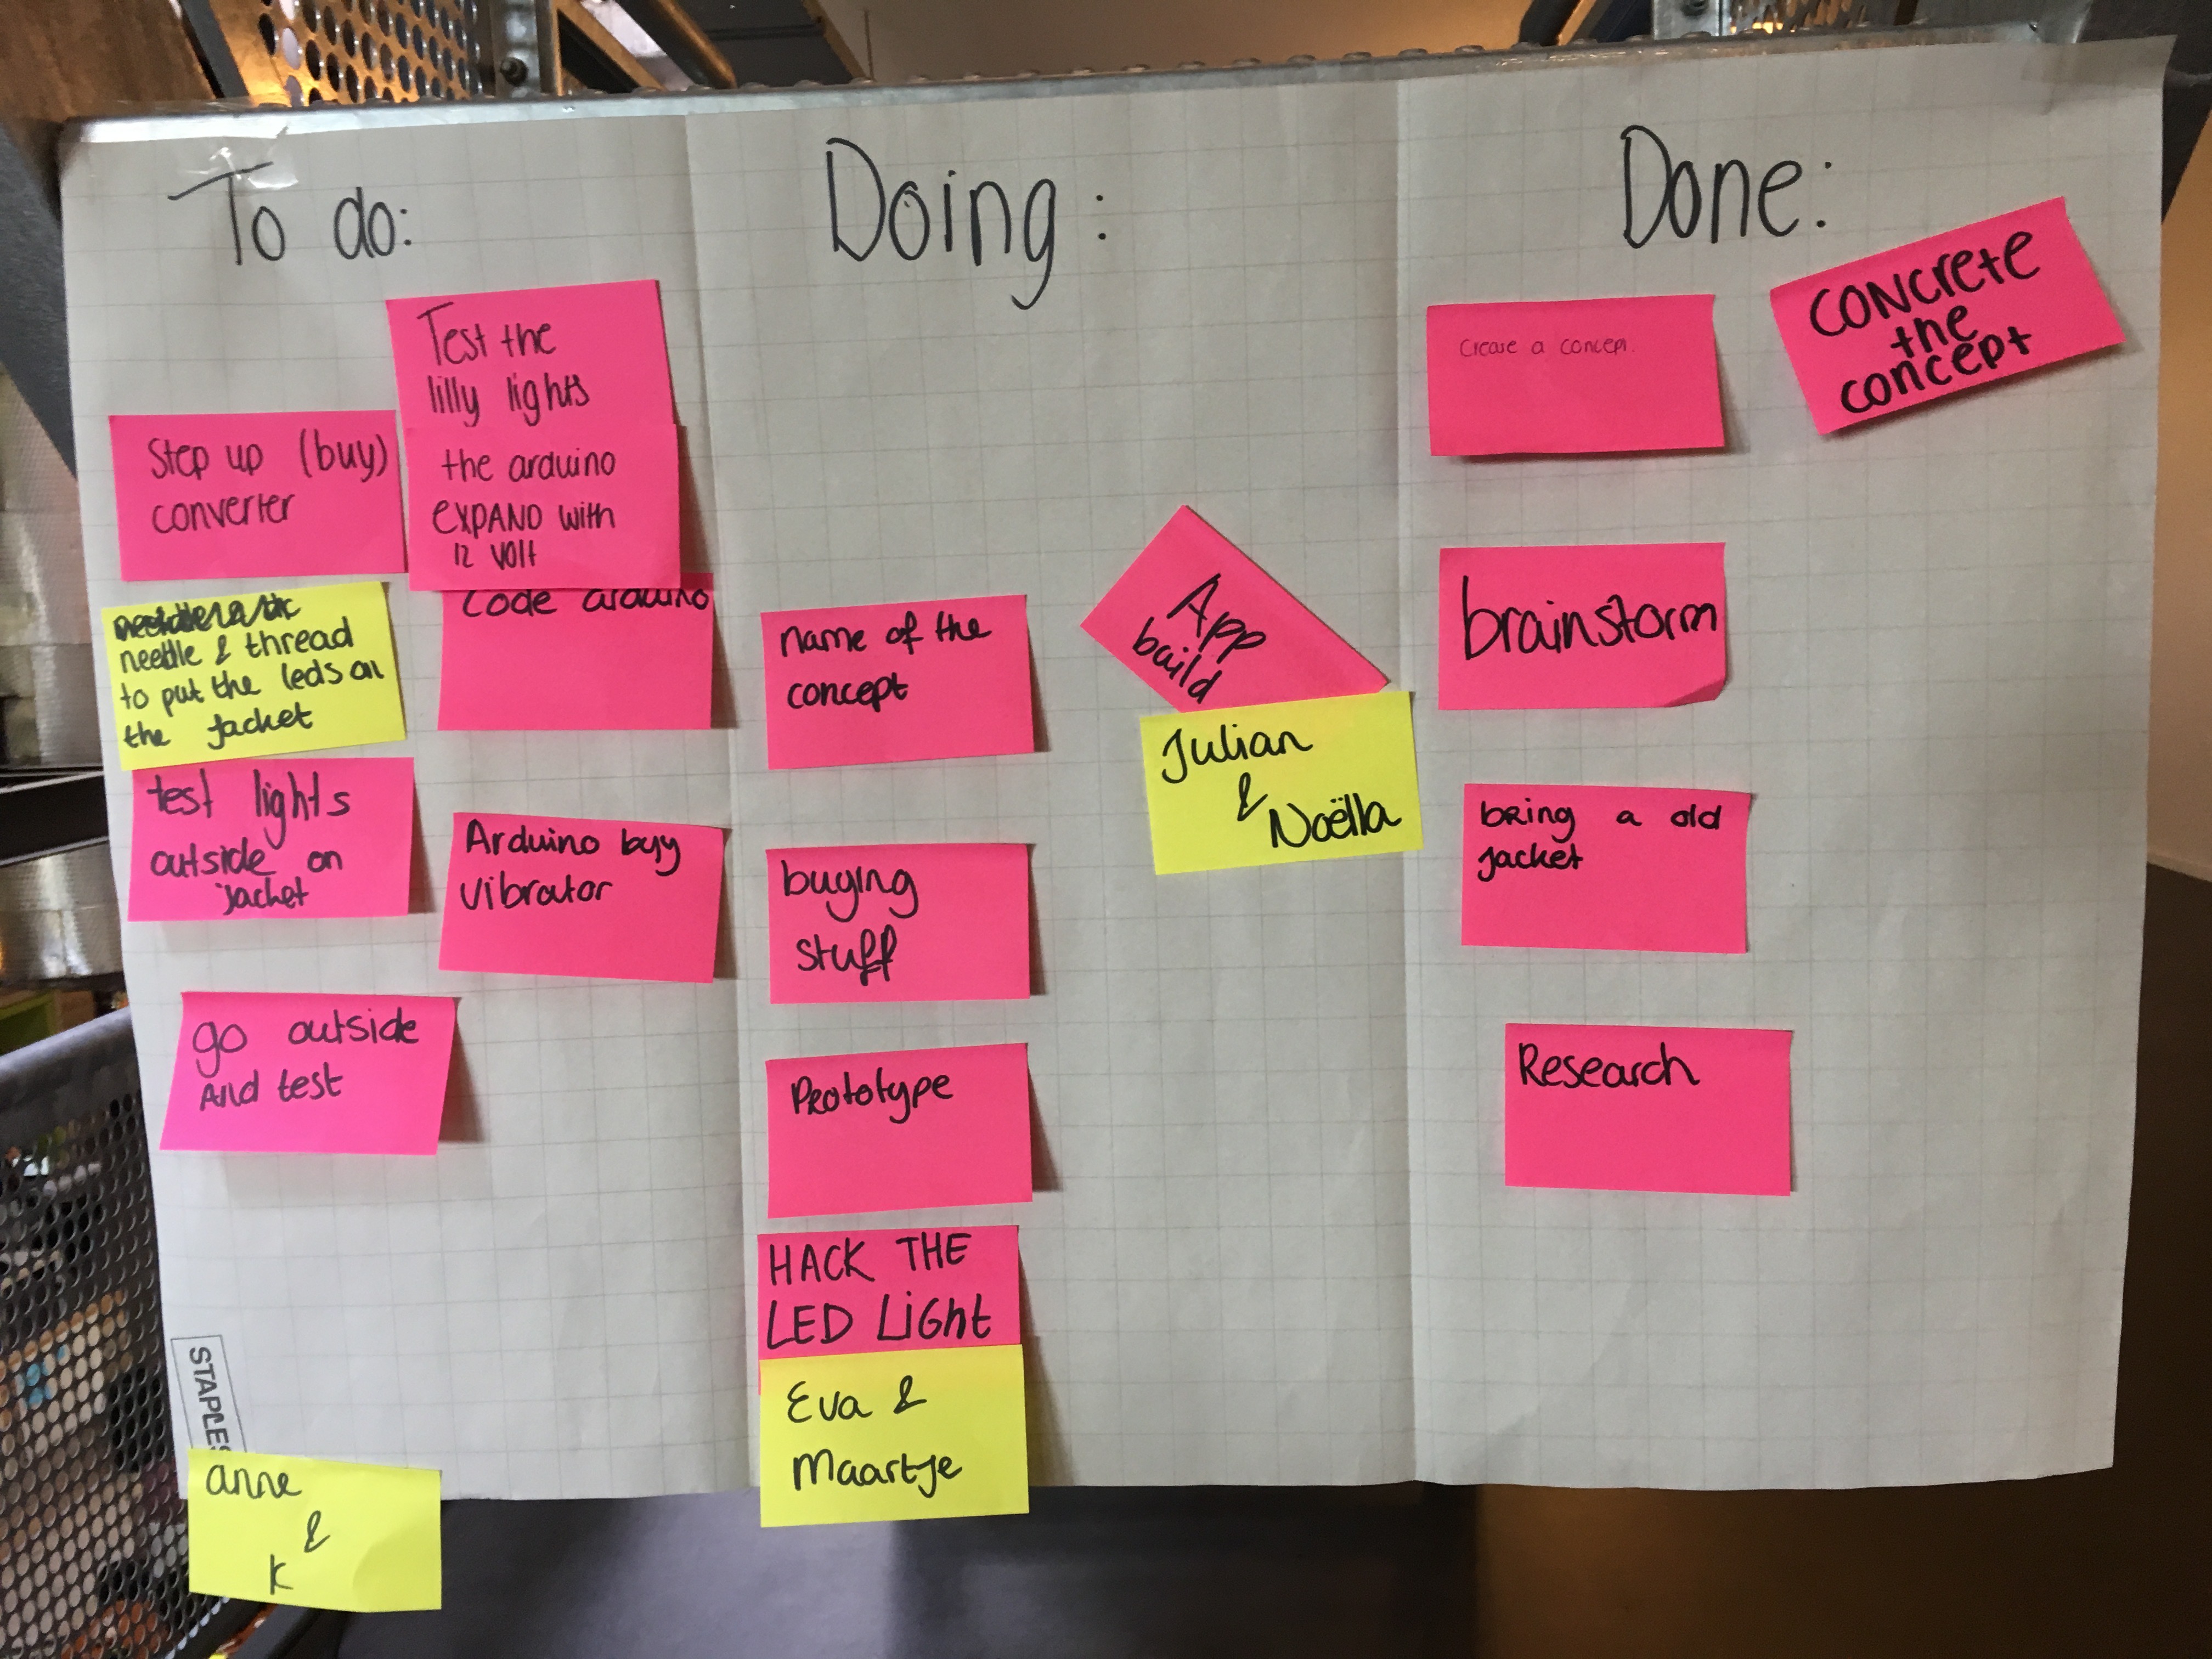 To do:
Test the
lilly lights
Step up (buy)
converter
the arduino
EXPAND with
12 volt
needle & thread
to put the leds on
the jacket
Code arduino
test lights
outside on
jacket
Arduino buy
vibrator
go outside
And test
STAPLES
anne
&
K
Doing:
name of the
concept
App
baild
Julian
&
Noëlla
buying
stuff
Prototype
HACK THE
LED LiGht
Eva &
Maartje
Done:
Create a concept.
CONCrete
the
concept
brainstorm
bring a old
jacket
Research